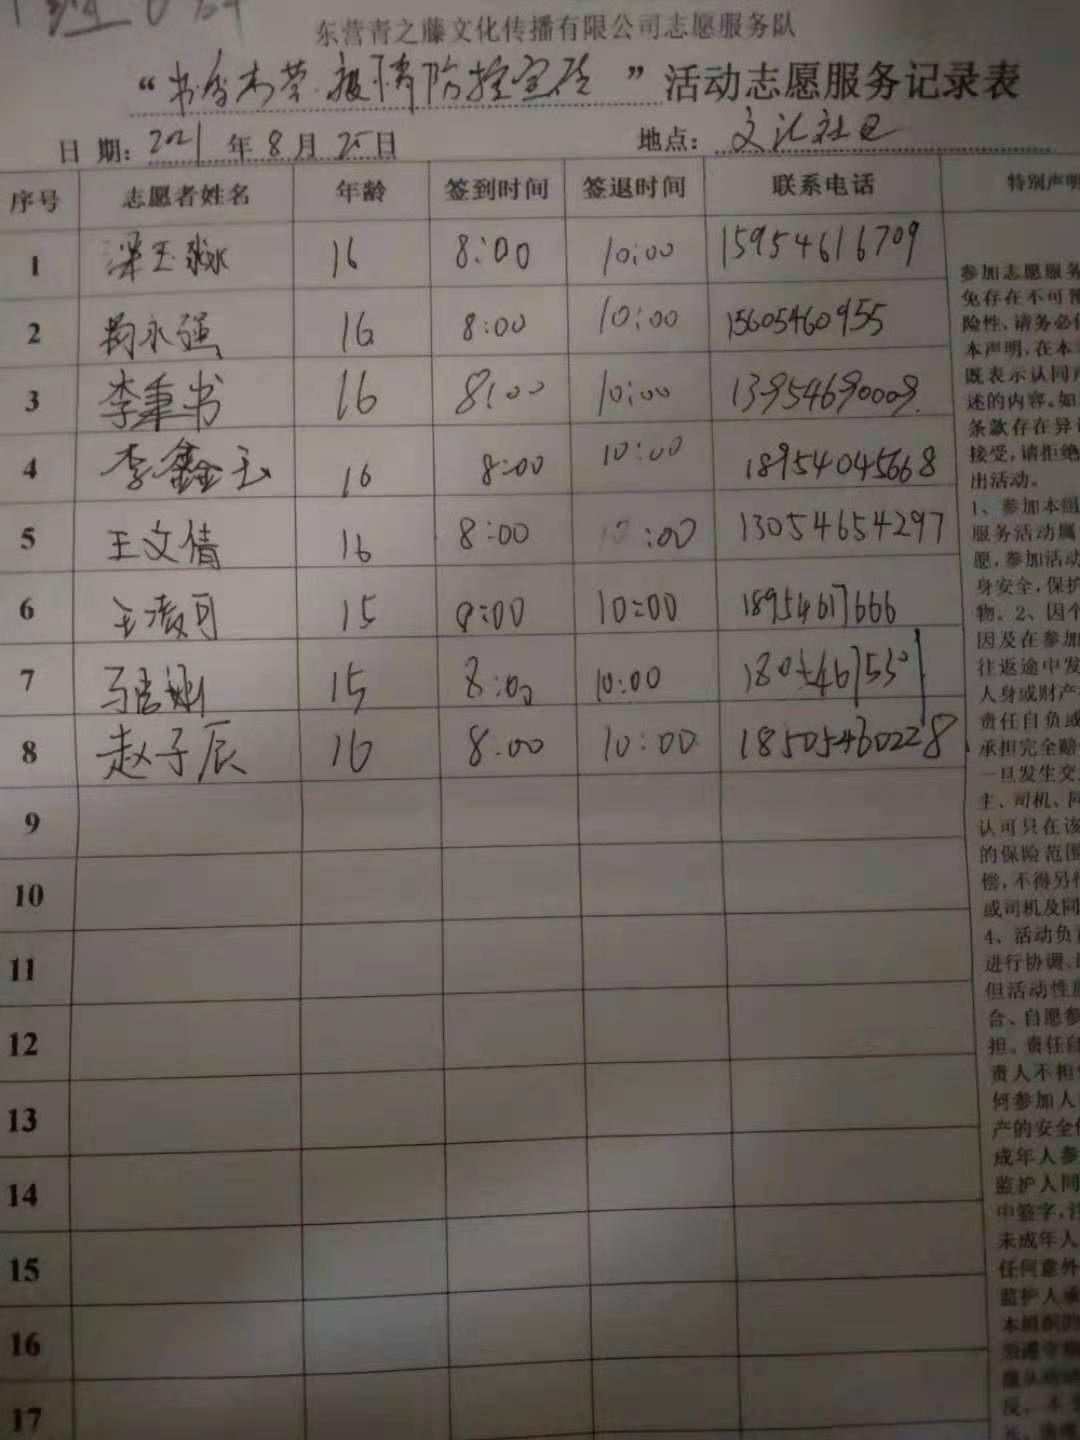 东营青之藤文化传播有限公司志愿服务队
“书香 疫情防控宣传”活动志愿服务记录表
日 期：2021 年 8 月 25 日 地点：文汇社区
序号 志愿者姓名 年龄 签到时间 签退时间 联系电话 特别声明
1 梁玉 16 8:00 10:00 15954616709
2 永强 16 8:00 10:00 15605460955
3 李秉书 16 8:00 10:00 13954690009
4 李鑫玉 16 8:00 10:00 18954045668
5 王文倩 16 8:00 10:00 13054654297
6 王凌可 15 8:00 10:00 18954617666
7 马 15 8:00 10:00
8 赵子辰 16 8.00 10:00 18505460228
9
10
11
12
13
14
15
16
17
参加志愿服务
免存在不可预
险性，请务必仔
本声明，在本
既表示认同声
述的内容。如
条款存在异议
接受，请拒绝
出活动。
1、参加本组
服务活动属
愿，参加活动
身安全，保护
物。2、因个
因及在参加
往返途中发
人身或财产
责任自负或
承担完全赔
一旦发生交
主、司机、同
认可只在该
的保险范围
偿，不得另行
或司机及同
4、活动负责
进行协调、
但活动性质
合、自愿参
担。责任自
责人不担
何参加人
产的安全
成年人参
监护人同
中签字，注
未成年人
任何意外
监护人承
本组织的
须遵守
服从活动